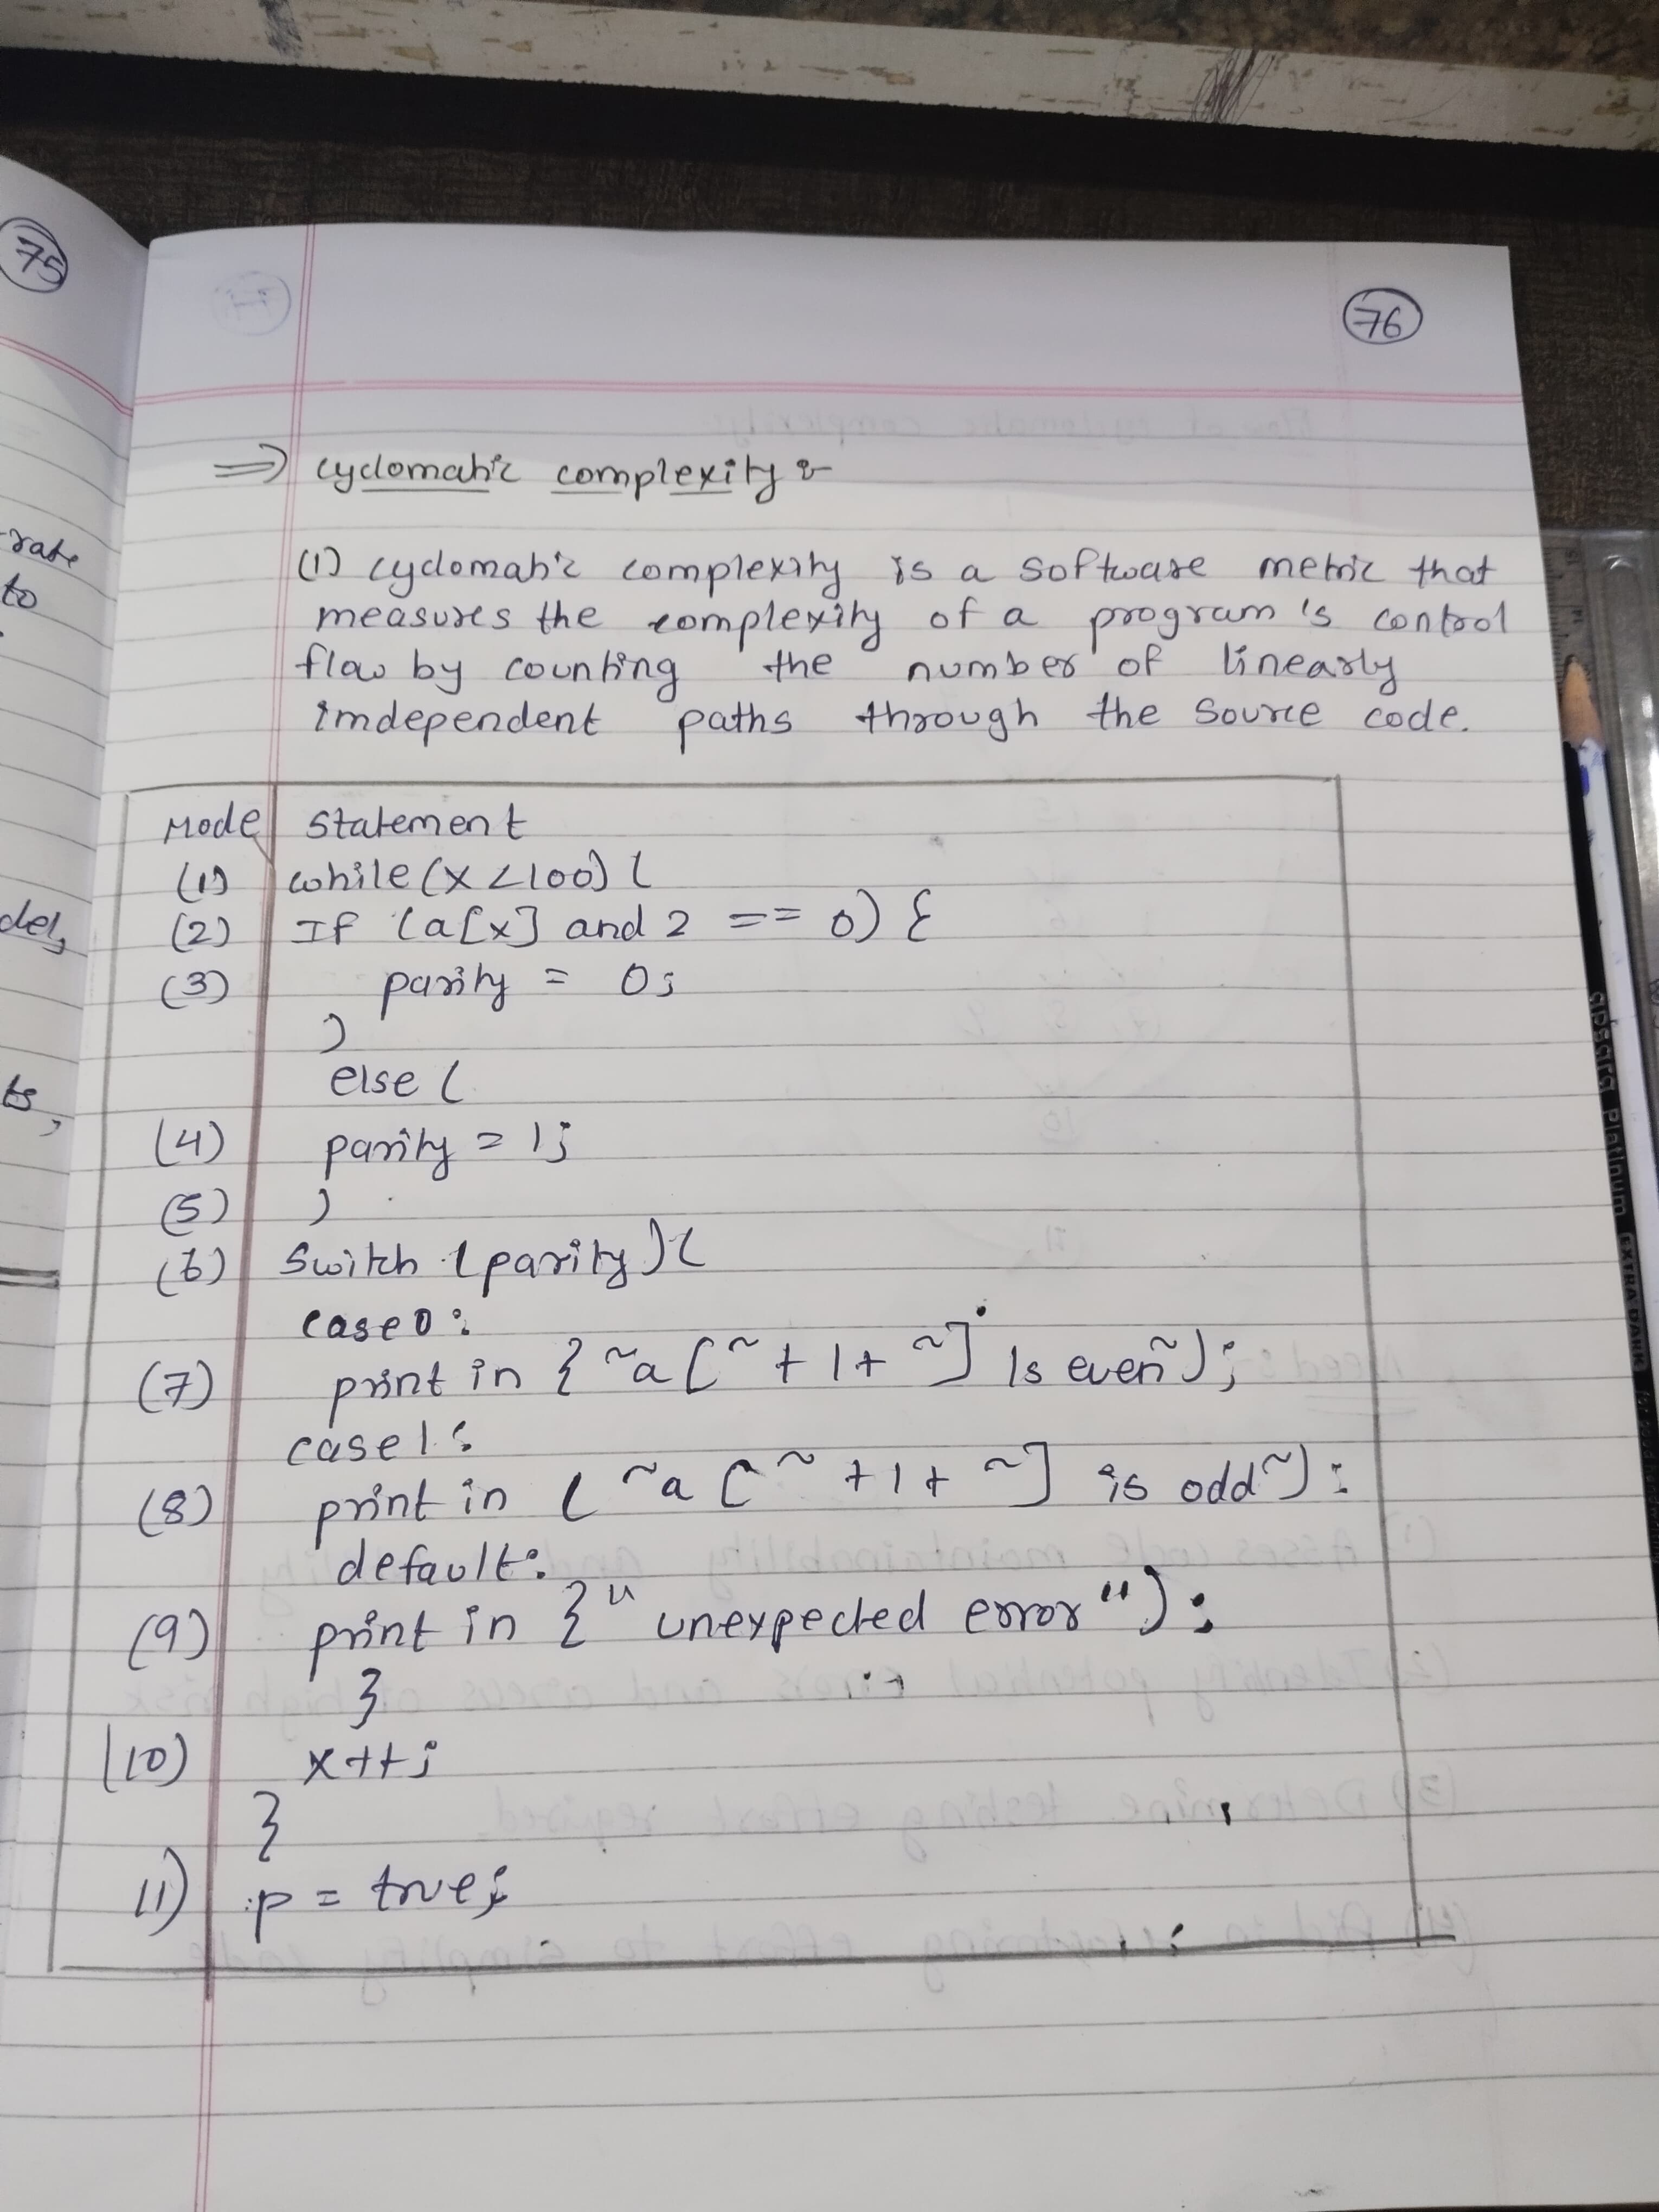 75
76
rate
to
del,
ts,
⇒ cyclomatic complexity :-
(1) cyclomatic complexity is a software metric that
measures the complexity of a program's control
flow by counting the number of linearly
imdependent paths through the source code.
Mode Statement
(1) while (x <100) (
(2) If (a[x] and 2 == 0) {
(3) parity = 0;
)
else (
(4) parity = 1;
(5) )
(6) Switch (parity) (
case0:
(7) print in { ~a [~ + 1 + ~] Is even~);
case1:
(8) print in ( ~a [~ + 1 + ~] is odd~):
default:
(9) print in {" unexpected error");
}
(10) x++;
}
11) p = true;
apsara Platinum EXTRA DARK